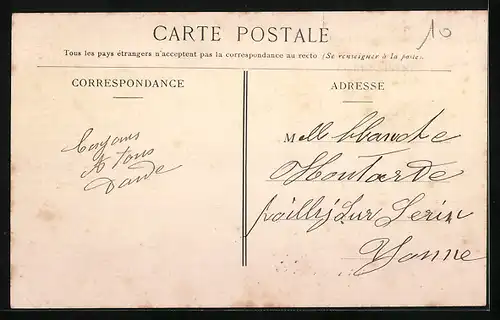 10
CARTE POSTALE
Tous les pays étrangers n'acceptent pas la correspondance au recto (Se renseigner à la poste)
CORRESPONDANCE
ADRESSE
A tous
Melle Blanche
Moutarde
Poilly sur Serin
Yonne